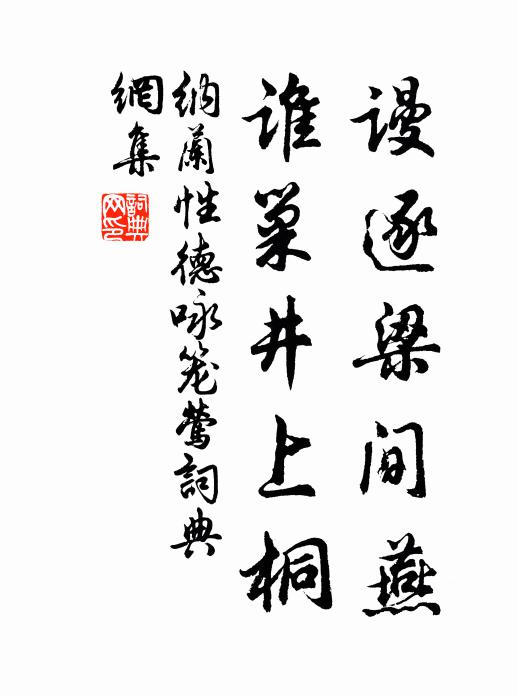 谩逐梁间燕
谁巢井上桐
纳兰性德咏笼莺詞典
網集
詞典網印